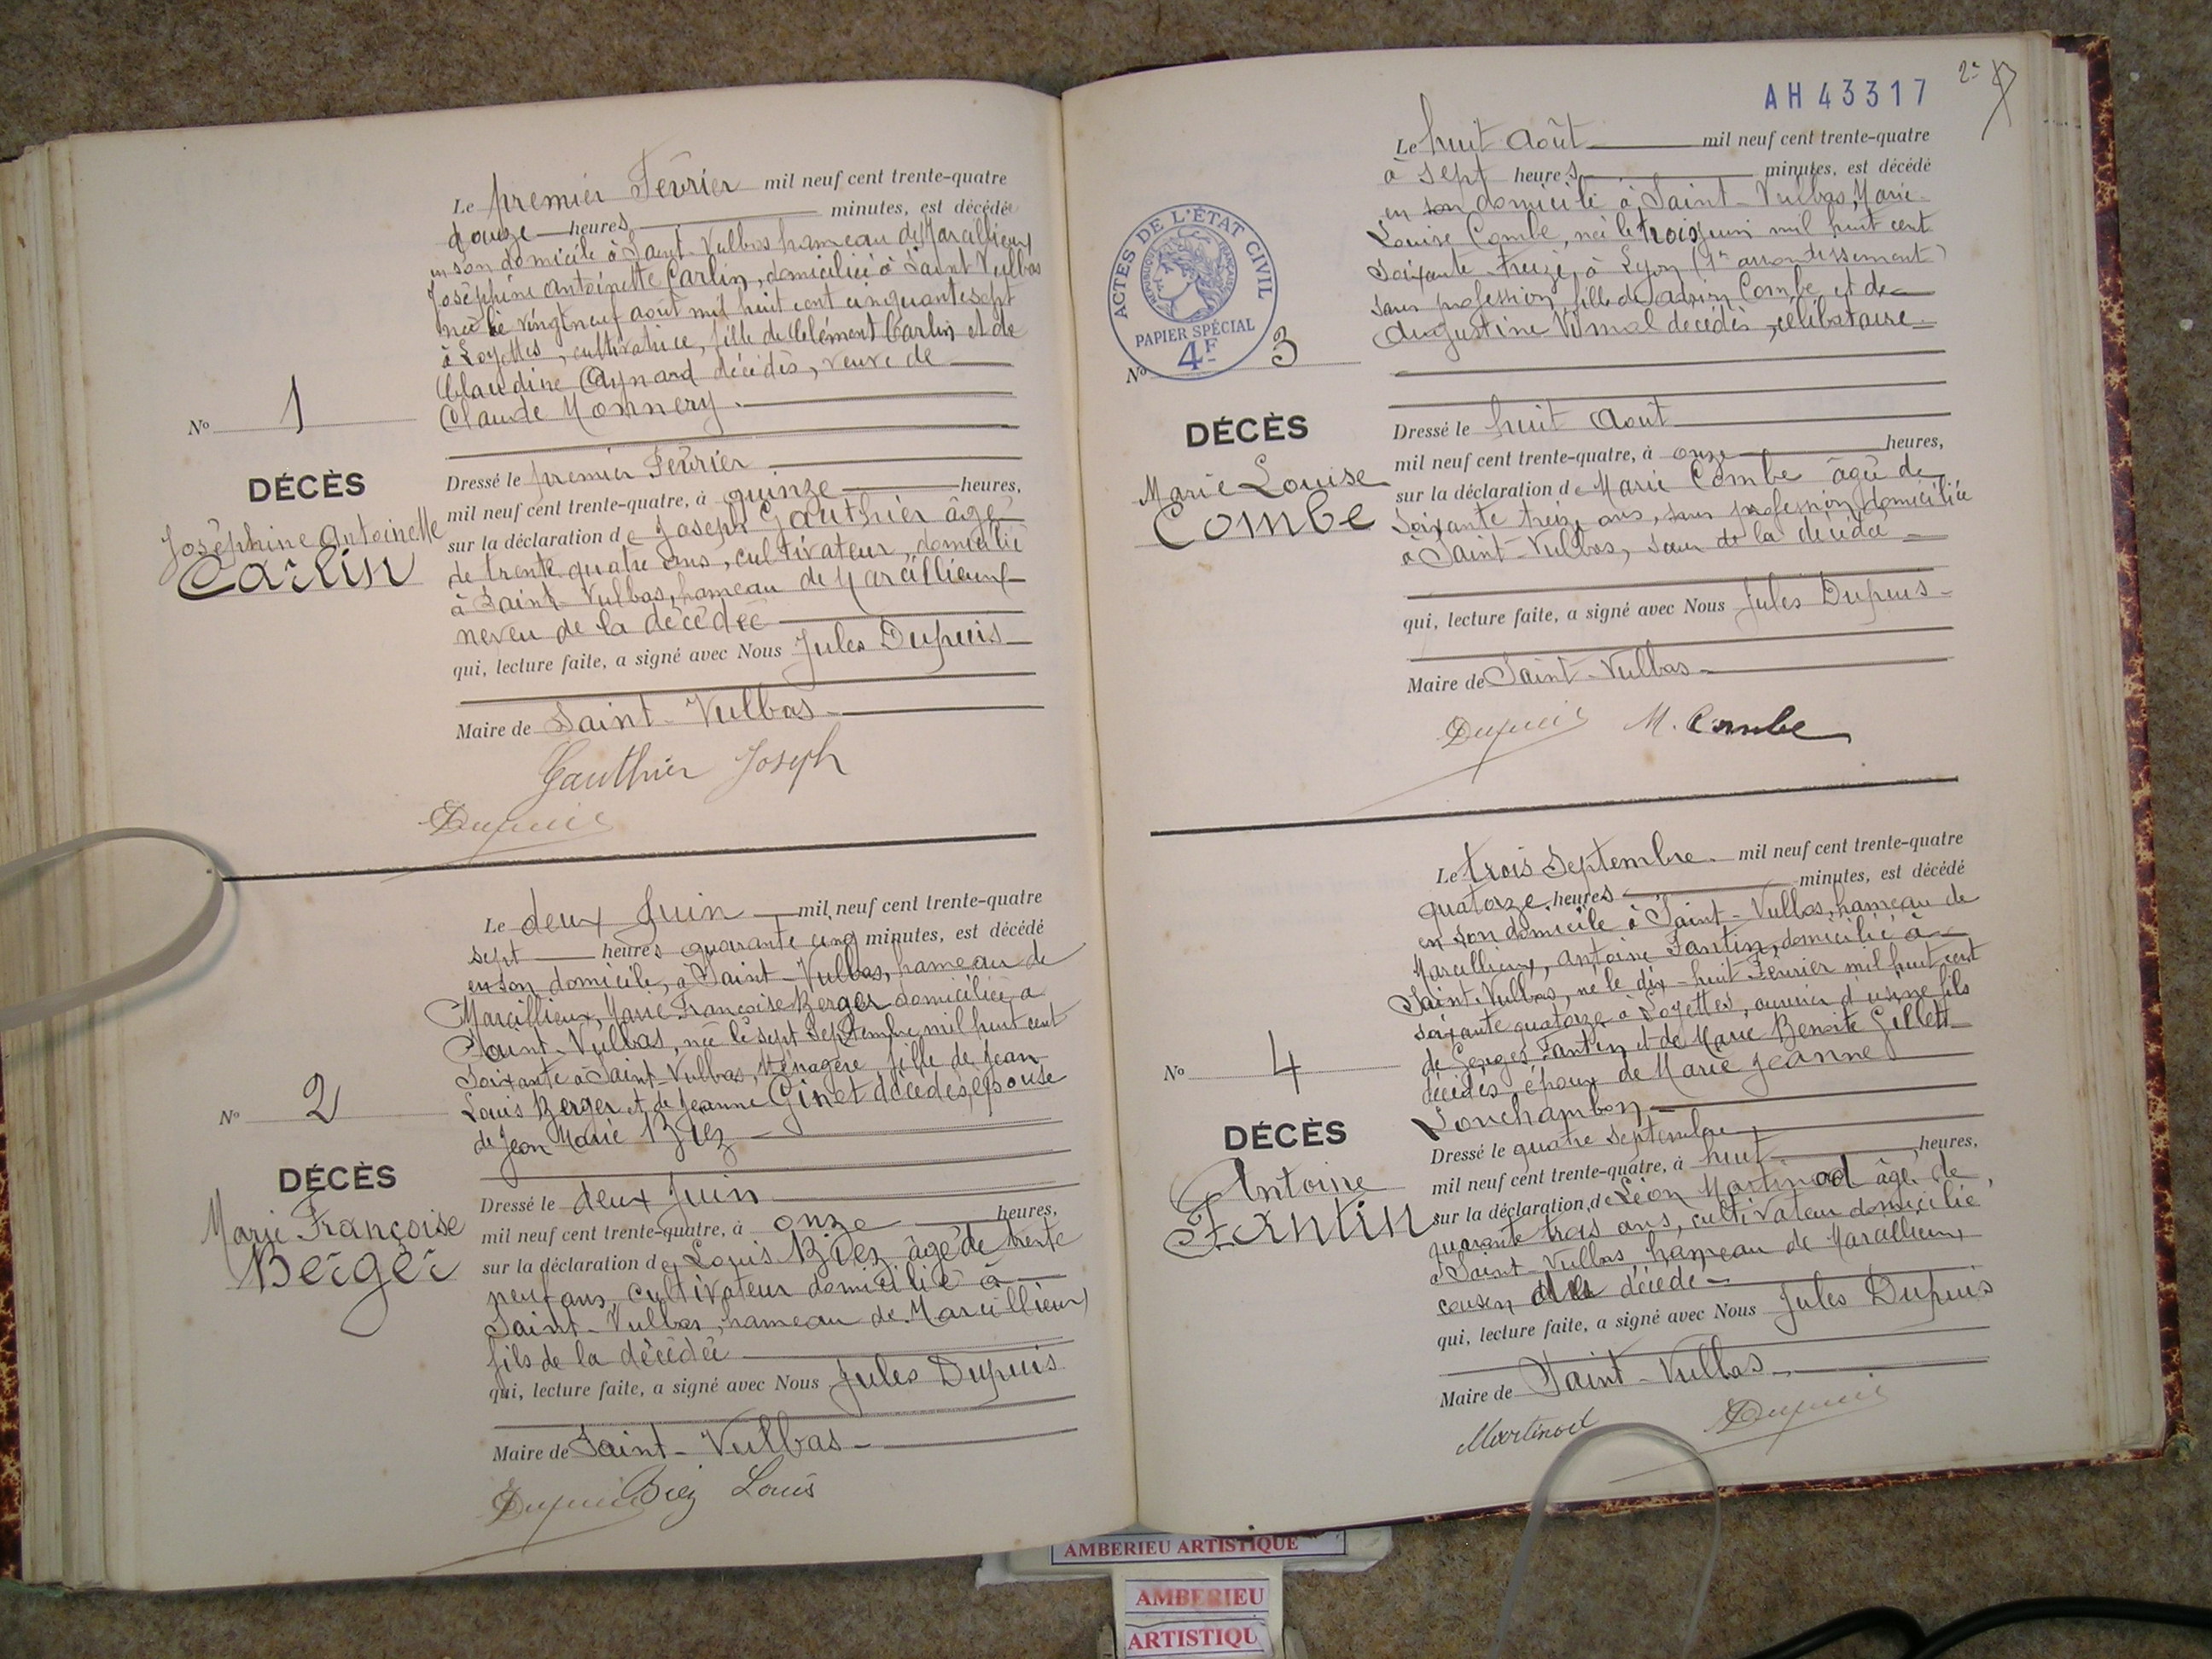 Le premier Février mil neuf cent trente-quatre
douze heures minutes, est décédée
en son domicile à Saint-Vulbas hameau de Marcillieux
Joséphine Antoinette Carlin, domiciliée à Saint Vulbas
née le vingt neuf août mil huit cent cinquante sept
à Loyettes, cultivatrice, fille de Clément Carlin et de
Claudine Aynard décédés, veuve de
Claude Monnery.
No 1
DÉCÈS
Joséphine Antoinette
Carlin
Dressé le premier Février
mil neuf cent trente-quatre, à quinze heures,
sur la déclaration de Joseph Gauthier âgé
de trente quatre ans, cultivateur, domicilié
à Saint-Vulbas, hameau de Marcillieux
neveu de la décédée
qui, lecture faite, a signé avec Nous Jules Dupuis
Maire de Saint-Vulbas
Gauthier Joseph
Dupuis
Le deux Juin mil neuf cent trente-quatre
sept heures quarante cinq minutes, est décédé
en son domicile, à Saint-Vulbas, hameau de
Marcillieux, Marie Françoise Berger domiciliée à
Saint-Vulbas, née le sept Septembre mil huit cent
soixante à Saint-Vulbas, Ménagère, fille de Jean
Louis Berger et de Jeanne Ginet décédés, épouse
de Jean Marie Biez
No 2
DÉCÈS
Marie Françoise
Berger
Dressé le deux Juin
mil neuf cent trente-quatre, à onze heures,
sur la déclaration de Louis Biez âgé de trente
neuf ans, cultivateur domicilié à
Saint-Vulbas, hameau de Marcillieux
fils de la décédée
qui, lecture faite, a signé avec Nous Jules Dupuis
Maire de Saint-Vulbas
Dupuis Biez Louis
AH 43317
2e
Le huit Août mil neuf cent trente-quatre
à sept heures minutes, est décédé
en son domicile à Saint-Vulbas, Marie
Louise Combe, née le trois juin mil huit cent
soixante-treize, à Lyon (1er arrondissement)
sans profession, fille de Combe et de
Augustine décédés, célibataire
ACTES DE L'ÉTAT CIVIL
RÉPUBLIQUE FRANÇAISE
PAPIER SPÉCIAL
4F
No 3
DÉCÈS
Marie Louise
Combe
Dressé le huit Août
mil neuf cent trente-quatre, à onze heures,
sur la déclaration de Marie Combe âgée de
soixante treize ans, sans profession, domiciliée
à Saint-Vulbas, sœur de la décédée
qui, lecture faite, a signé avec Nous Jules Dupuis
Maire de Saint-Vulbas
Dupuis M. Combe
Le trois Septembre mil neuf cent trente-quatre
quatorze heures minutes, est décédé
en son domicile à Saint-Vulbas, hameau de
Marcillieux, Antoine Fantin, domicilié à
Saint-Vulbas, né le dix-huit Février mil huit cent
soixante quatorze à Loyettes, ouvrier d'usine fils
de Georges Fantin et de Marie Benoite Gillett
décédés, époux de Marie Jeanne
Lonchambon
No 4
DÉCÈS
Antoine
Fantin
Dressé le quatre Septembre
mil neuf cent trente-quatre, à huit heures,
sur la déclaration de Léon Martinod âgé de
quarante trois ans, cultivateur domicilié
à Saint-Vulbas hameau de Marcillieux
cousin du décédé
qui, lecture faite, a signé avec Nous Jules Dupuis
Maire de Saint-Vulbas
Martinod Dupuis
AMBERIEU ARTISTIQUE
AMBERIEU
ARTISTIQU